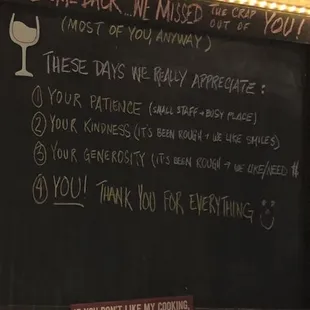 BACK...WE MISSED THE CRAP OUT OF YOU!
(MOST OF YOU, ANYWAY)
THESE DAYS WE REALLY APPRECIATE:
① YOUR PATIENCE (SMALL STAFF + BUSY PLACE)
② YOUR KINDNESS (IT'S BEEN ROUGH + WE LIKE SMILES)
③ YOUR GENEROSITY (IT'S BEEN ROUGH + WE LIKE/NEED $
④ YOU! THANK YOU FOR EVERYTHING
YOU DON'T LIKE MY COOKING,